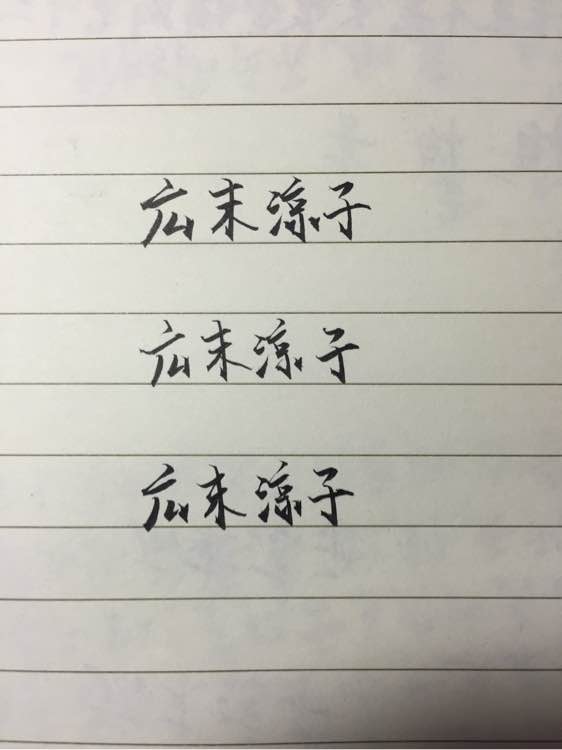 広末涼子
広末涼子
広末涼子